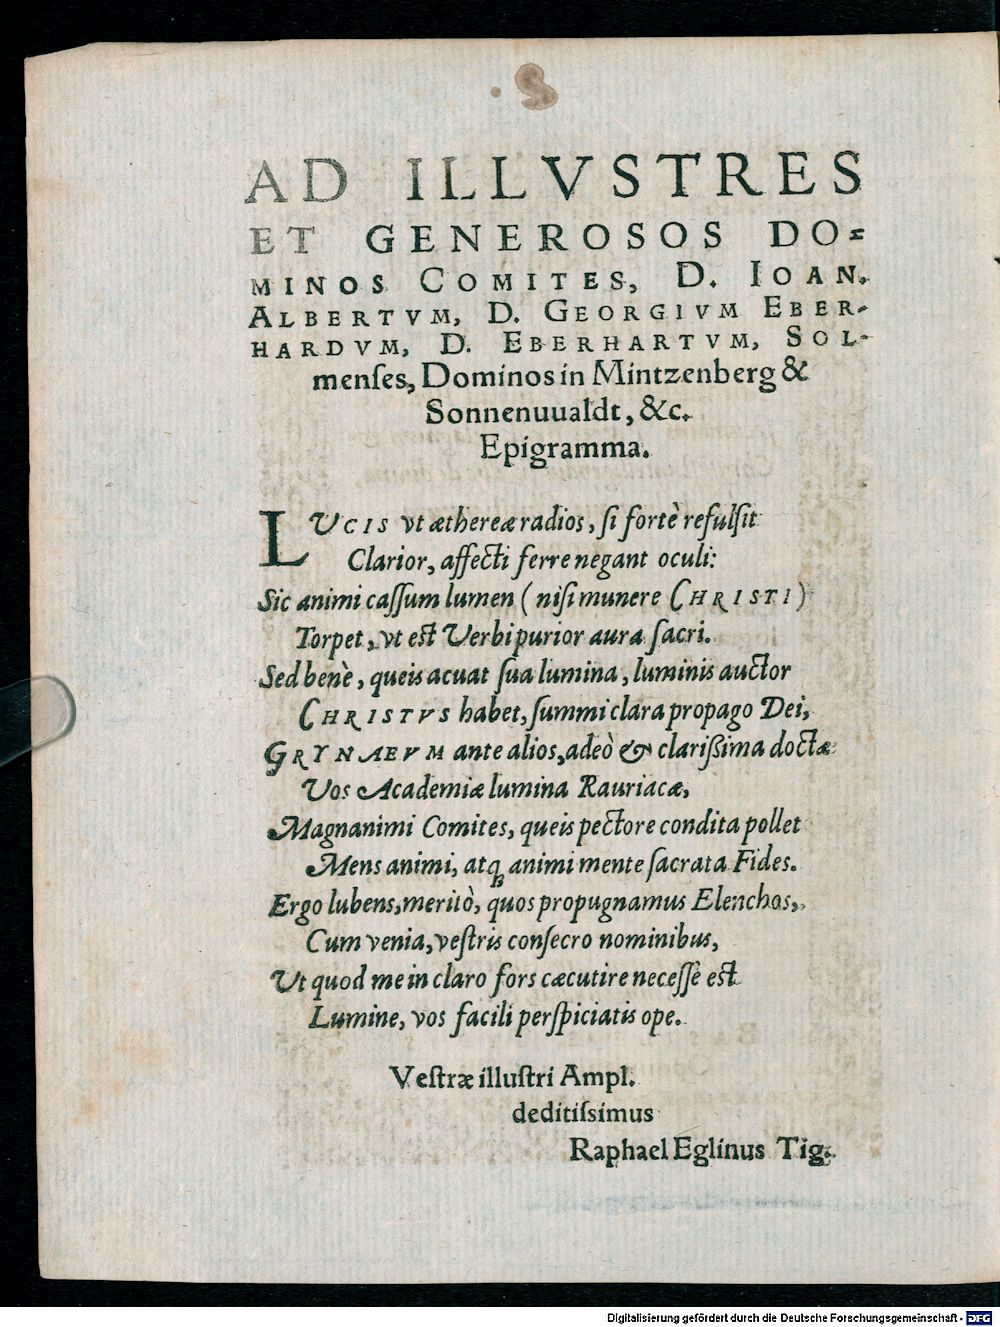 AD ILLVSTRES
ET GENEROSOS DO-
MINOS COMITES, D. IOAN.
ALBERTVM, D. GEORGIVM EBER-
HARDVM, D. EBERHARTVM, SOL-
menſes, Dominos in Mintzenberg &
Sonnenuualdt, &c.
Epigramma.
LUCIS vt æthereæ radios, ſi fortè refulſit
Clarior, affecti ferre negant oculi:
Sic animi caſſum lumen (niſi munere CHRISTI)
Torpet, vt est Verbi purior aura ſacri.
Sed benè, queis acuat ſua lumina, luminis auctor
CHRISTVS habet, ſummi clara propago Dei,
GRYNAEVM ante alios, adeò & clarißima doctæ
Vos Academiæ lumina Rauriacæ,
Magnanimi Comites, queis pectore condita pollet
Mens animi, atq; animi mente ſacrata Fides.
Ergo lubens, meritò, quos propugnamus Elenchos,
Cum venia, veſtris conſecro nominibus,
Ut quod me in claro fors cæcutire neceſſè est
Lumine, vos facili perſpiciatis ope.
Veſtræ illuſtri Ampl.
deditiſsimus
Raphael Eglinus Tig.
Digitalisierung gefördert durch die Deutsche Forschungsgemeinschaft - DFG